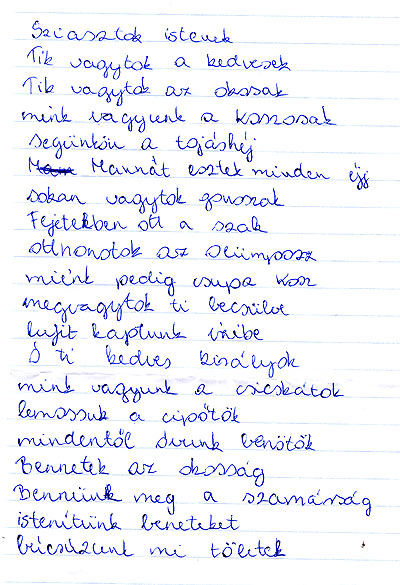 Sziasztok istenek
Tik vagytok a kedvesek
Tik vagytok az okosak
mink vagyunk a koszosak
segünkön a tojáshéj
Mannát esztek minden éjj
sokan vagytok gonoszak
Fejetekben ott a szak
otthonotok az Olümposz
miénk pedig csupa kosz
megvagytok ti becsülve
lufit kaptunk
Ó ti kedves királyok
mink vagyunk a csicskátok
lemossuk a cipőtök
mindentől óvunk benötök
Bennetek az okosság
Bennünk meg a szamárság
istenítünk beneteket
búcsúzunk mi tőletek